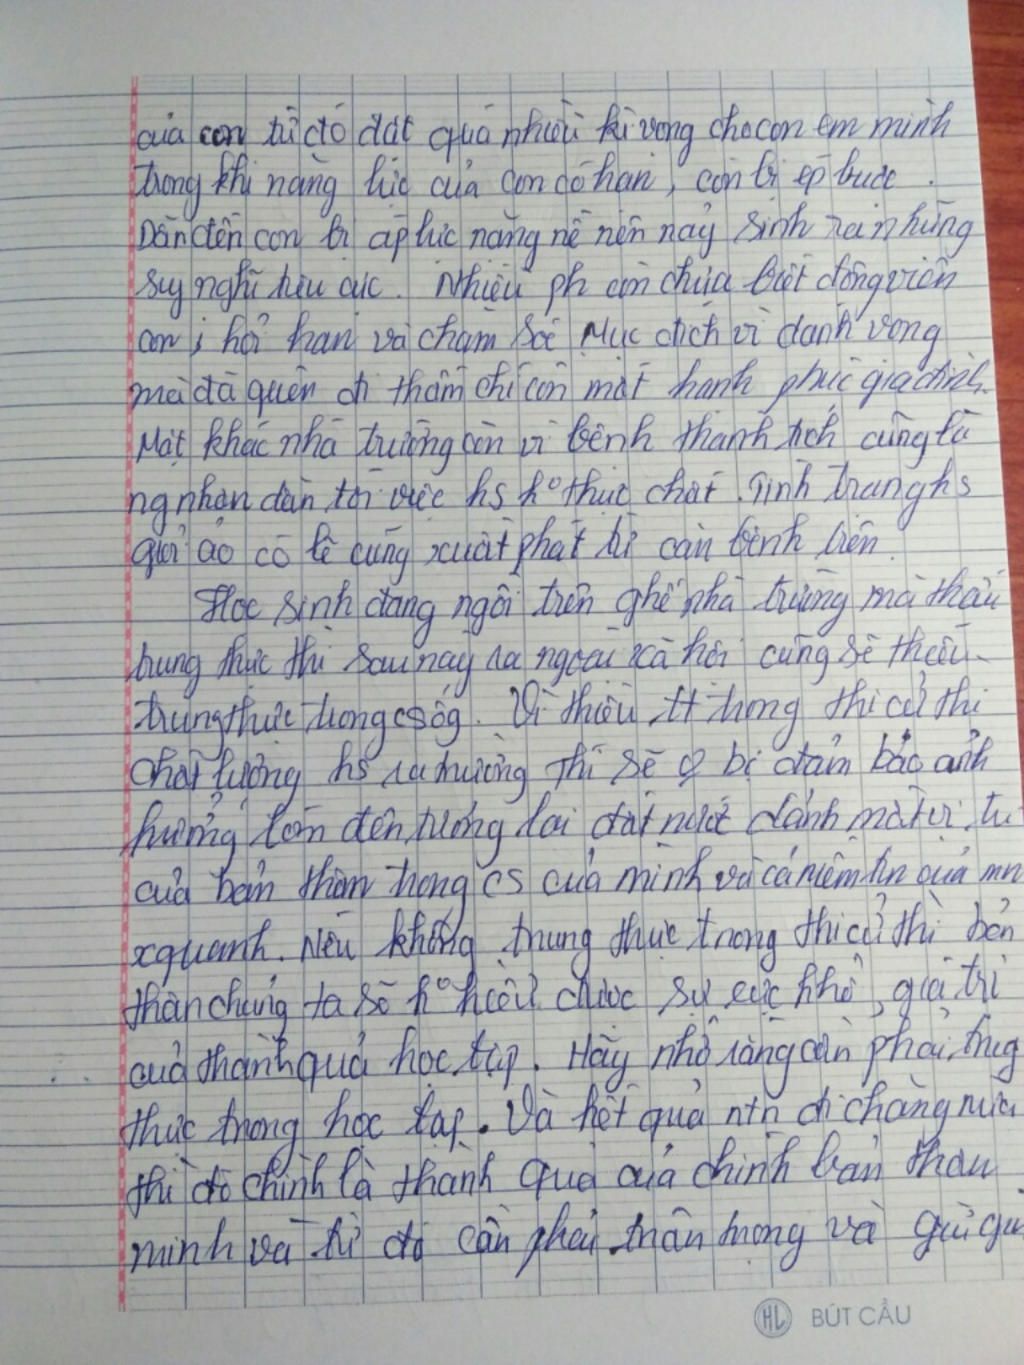 của con từ đó đặt quá nhiều kì vọng cho con em mình
trong khi năng lực của con có hạn, còn bị ép buộc.
Dẫn đến con bị áp lực nặng nề nên nảy sinh ra những
suy nghĩ tiêu cực. Nhiều ph còn chưa biết động viên
con, hỏi han và chăm sóc Mục đích vì danh vọng
mà đã quên đi thậm chí còn mất hạnh phúc gia đình.
Mặt khác nhà trường còn vì bệnh thành tích cũng là
ng nhân dẫn tới việc hs ko thực chất. Tình trạng hs
giỏi ảo có lẽ cũng xuất phát từ căn bệnh trên.
Học sinh đang ngồi trên ghế nhà trường mà thiếu
trung thực thì sau này ra ngoài xã hội cũng sẽ thiếu
trung thực trong csốg. Vì thiếu tt trong thi cử thì
chất lượng hs ra trường thì sẽ bị đảm bảo ảnh
hưởng lớn đến tương lai đất nước đánh mất
của bản thân trong cs của mình và cả niềm tin của mn
xquanh. Nếu không trung thực trong thi cử thì bản
thân chúng ta sẽ ko hiểu được sự cực khổ, giá trị
của thành quả học tập. Hãy nhớ rằng cần phải trug
thực trong học tập. Và kết quả ntn đi chăng nữa
thì đó chính là thành quả của chính bản thân
mình và từ đó cần phải trân trọng và giữ gìn
HL BÚT CẦU